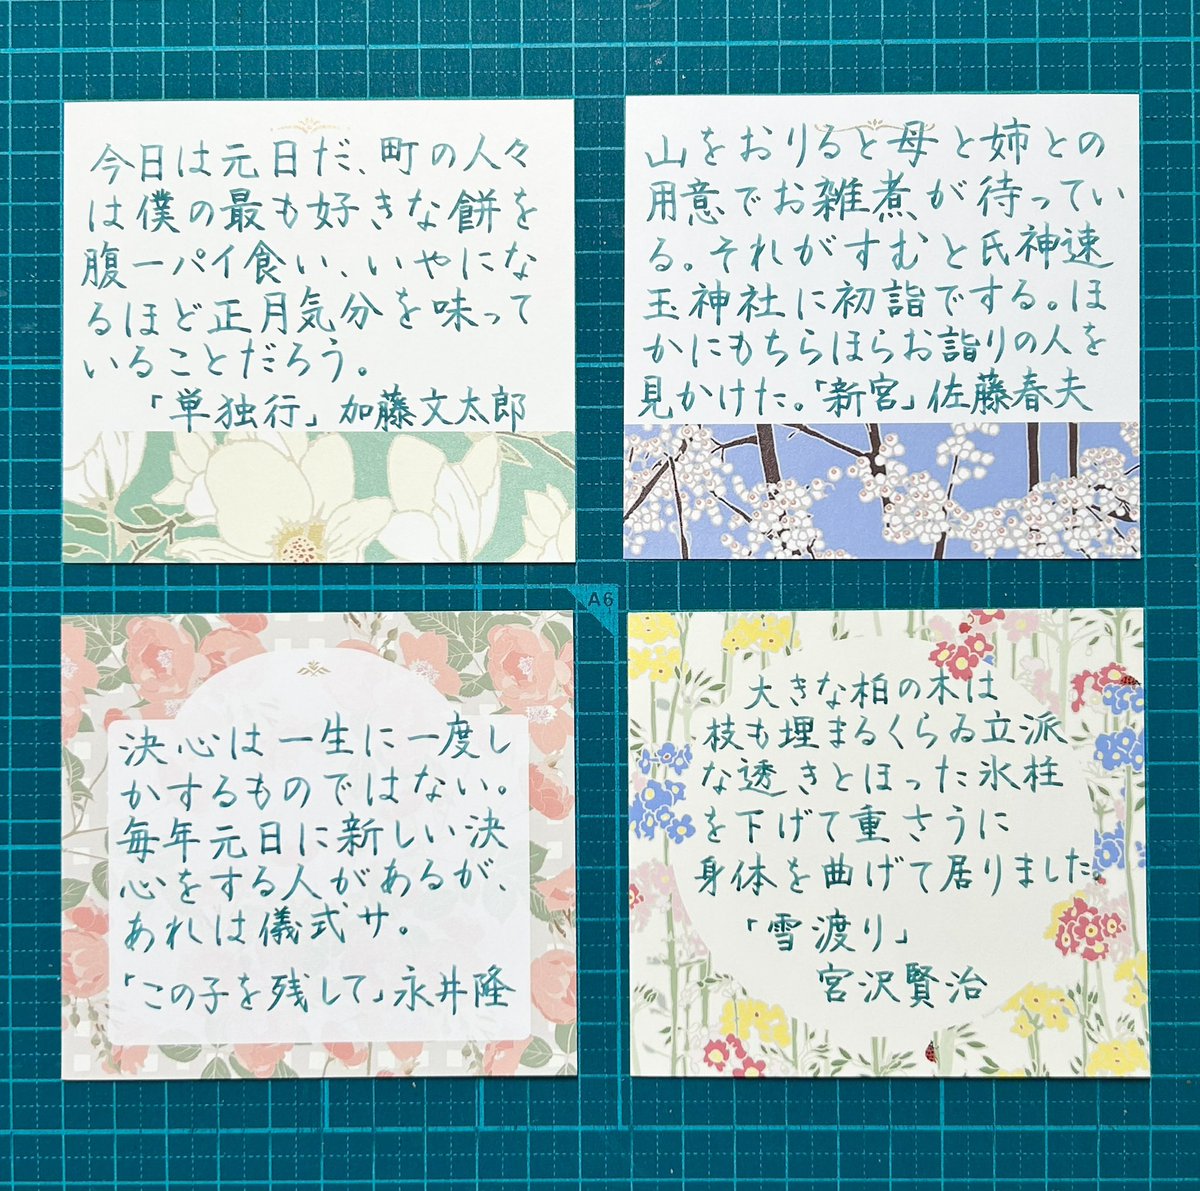 今日は元日だ、町の人々
は僕の最も好きな餅を
腹一パイ食い、いやにな
るほど正月気分を味って
いることだろう。
「単独行」加藤文太郎
山をおりると母と姉との
用意でお雑煮が待ってい
る。それがすむと氏神速
玉神社に初詣でする。ほ
かにもちらほらお詣りの人を
見かけた。「新宮」佐藤春夫
A6
決心は一生に一度し
かするものではない。
毎年元日に新しい決
心をする人があるが、
あれは儀式サ。
「この子を残して」永井隆
大きな柏の木は
枝も埋まるくらゐ立派
な透きとほった氷柱
を下げて重さうに
身体を曲げて居りました。
「雪渡り」
宮沢賢治